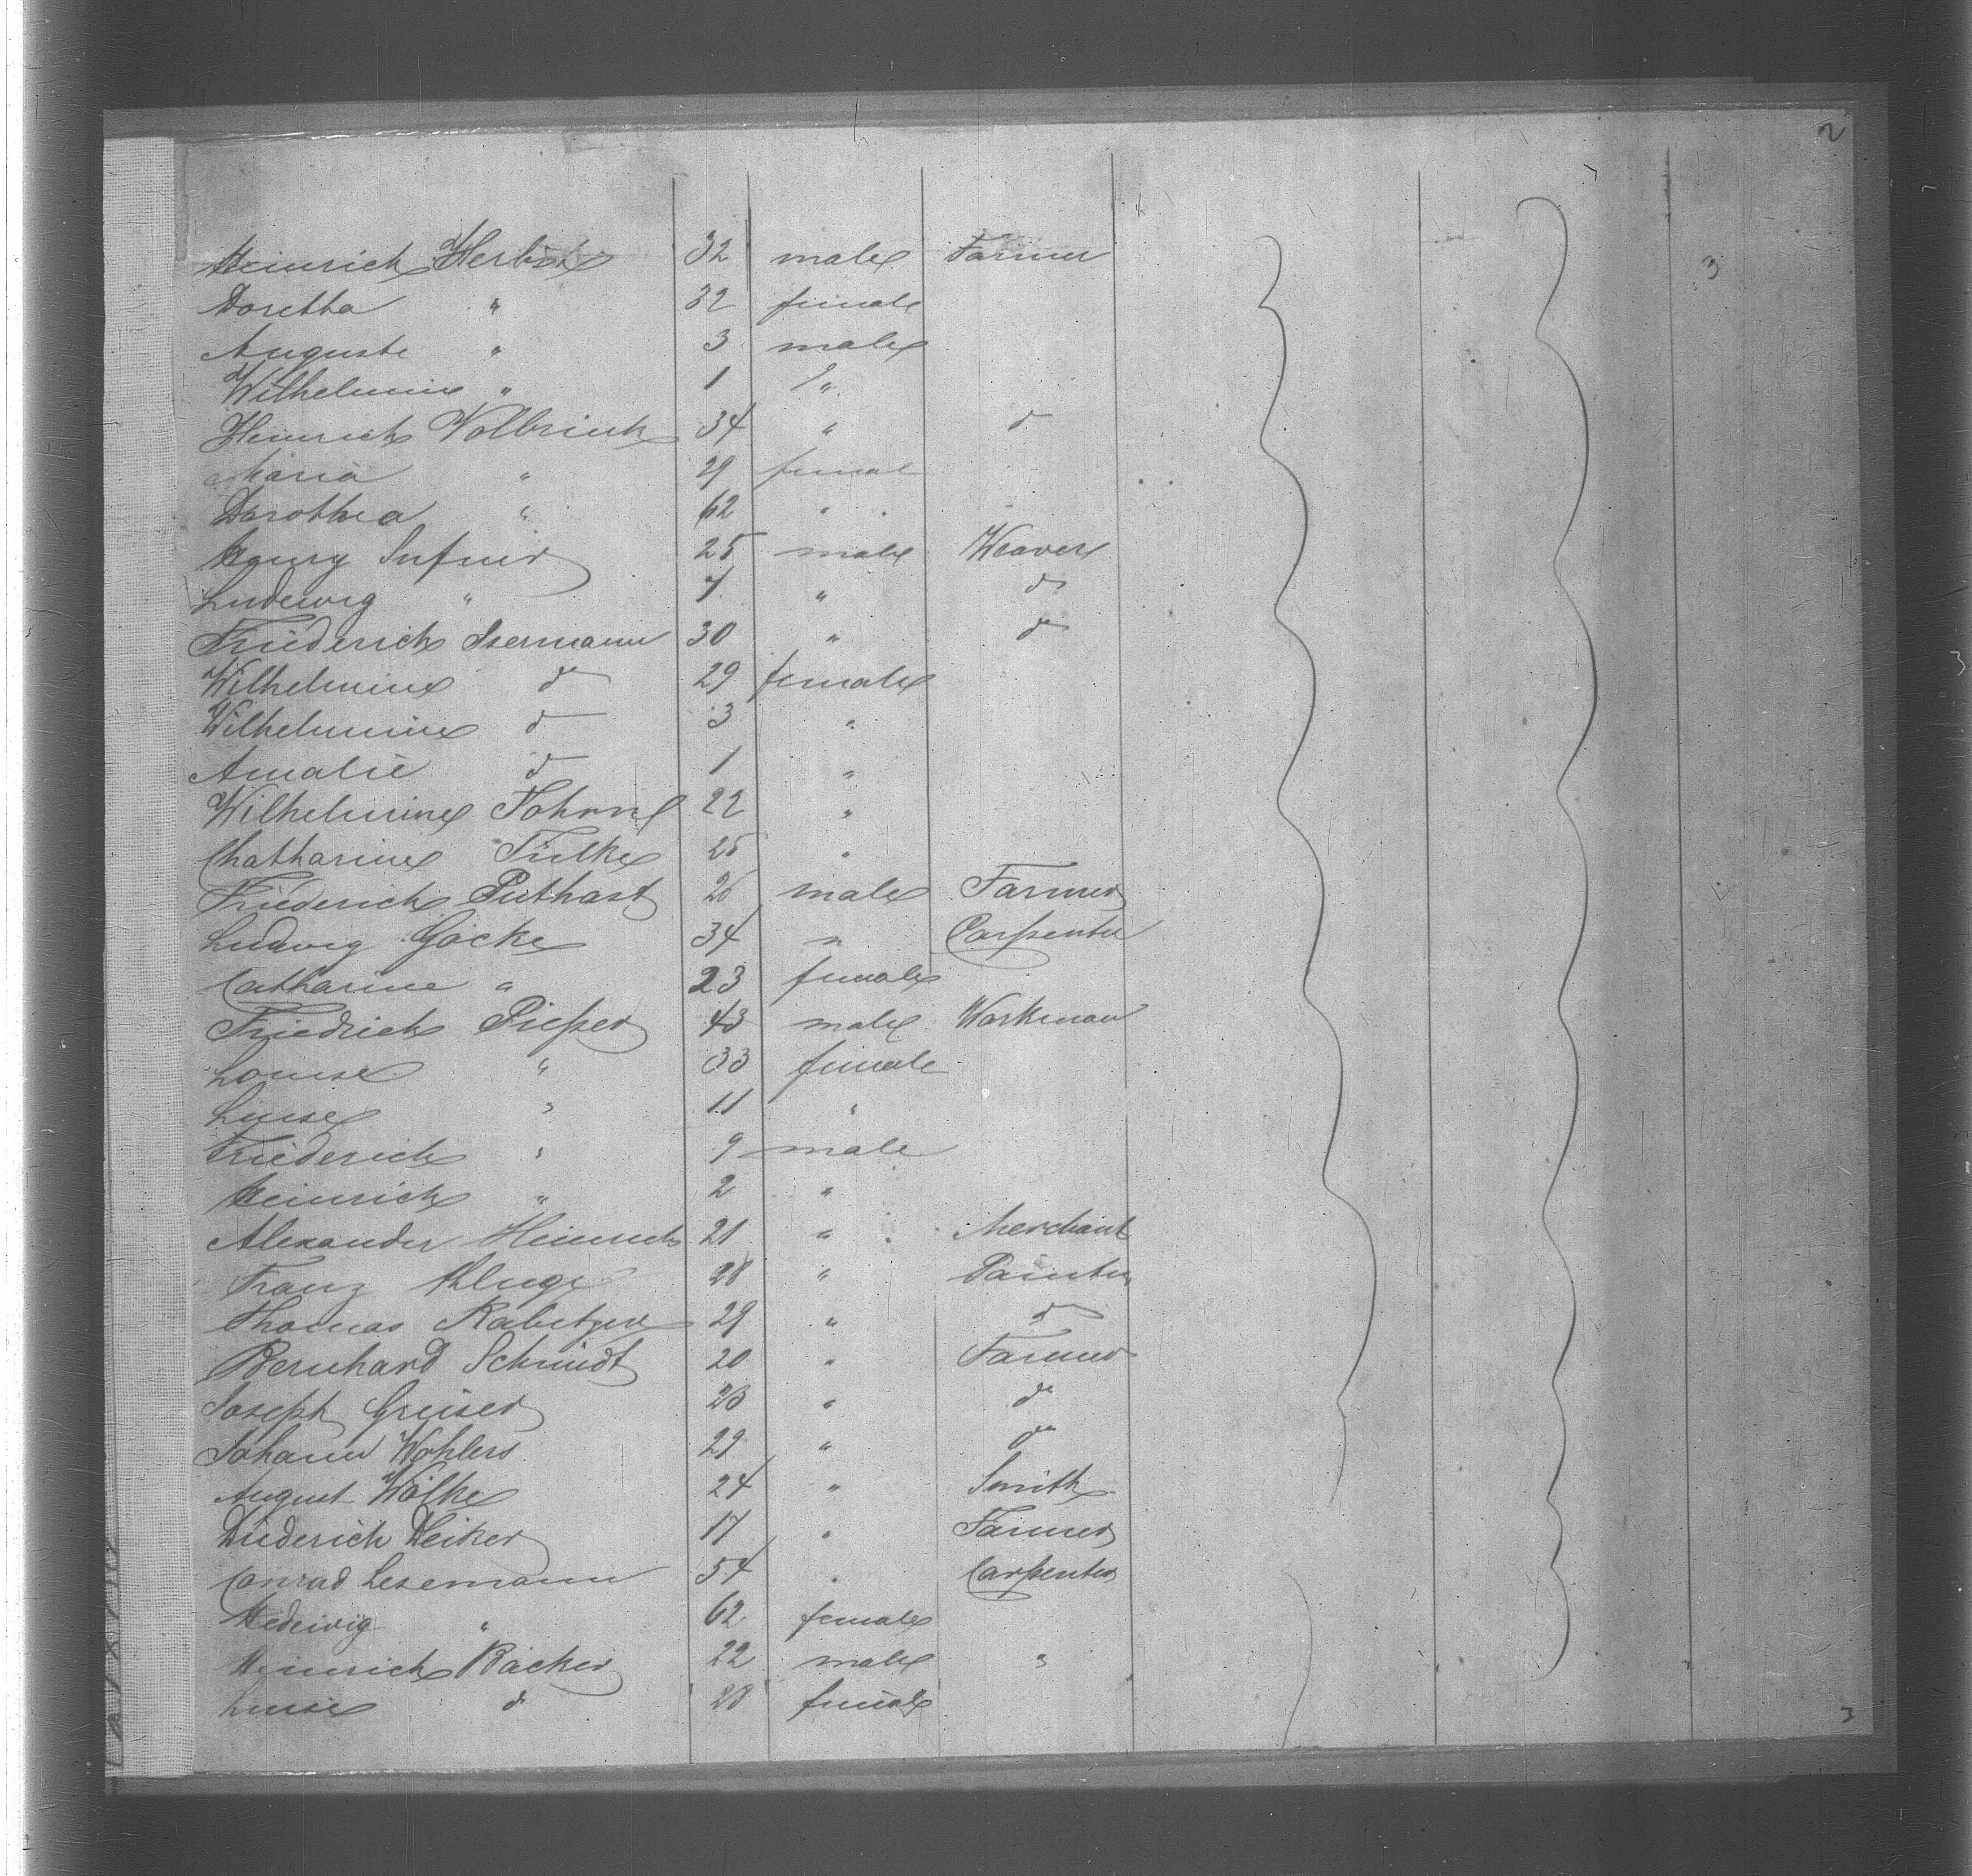 2
Heinrich Herbst 32 male Farmer 3
Doretha " 32 female
Auguste " 3 male
Wilhelmine " 1 "
Heinrich Vollbrink 34 " do
Maria " 29 female
Dorothea " 62 "
Henry 25 male Weaver
Ludewig " 7 " do
Friederich Isermann 30 " do
Wilhelmine do 29 female
Wilhelmine do 3 "
Amalie do 1 "
Wilhelmine 22 "
Chatharine Fülke 25 "
Friederich Puthast 26 male Farmer
Ludwig Göcke 34 " Carpenter
Catharine " 23 female
Friedrich Pießer 43 male Workman
Louise " 33 female
Luise " 11 "
Friederich " 9 male
Heinrich " 2 "
Alexander Heinrichs 21 " Merchant
Franz Kluge 28 " Painter
Thomas 29 " do
Bernhard Schmidt 20 " Farmer
Joseph Greiser 23 " do
Johann Wohlers 29 " do
August Wölke 24 " Smith
Diederich Deiker 17 " Farmer
Conrad Lesemann 54 " Carpenter
Hedewig " 62 female
Heinrich Backer 22 male "
Luise do 28 female
3